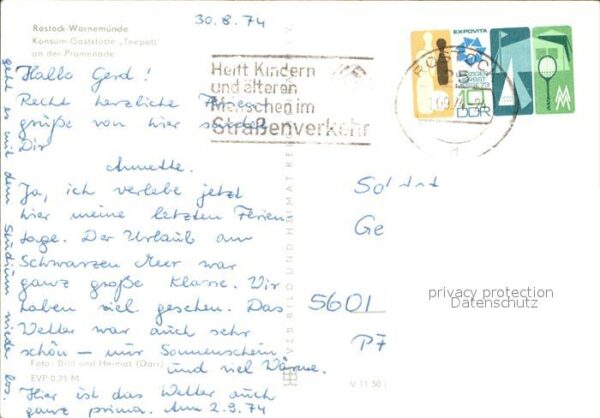 30.8.74
Rostock-Warnemünde
Konsum-Gaststätte „Teepott"
an der Promenade
Hallo Gerd!
Recht herzliche Ferien-
grüße von hier sendet
Dir
Annette.
Ja, ich verlebe jetzt
hier meine letzten Ferien-
tage. Der Urlaub am
Schwarzen Meer war
ganz große Klasse. Wir
haben viel gesehen. Das
Wetter war auch sehr
schön – nur Sonnenschein
und viel Wärme.
Hier ist das Wetter auch
ganz prima. Am 2.9.74
geht es mit dem Studium wieder los.
Foto: Bild und Heimat (Darr)
EVP 0,25 M
VEB BILD UND HEIMAT
V 11 50
Helft Kindern
und älteren
Menschen im
Straßenverkehr
EXPOVITA
10
DDR
MM
ROSTOCK
Soldat
Ge
5601
privacy protection
Datenschutz